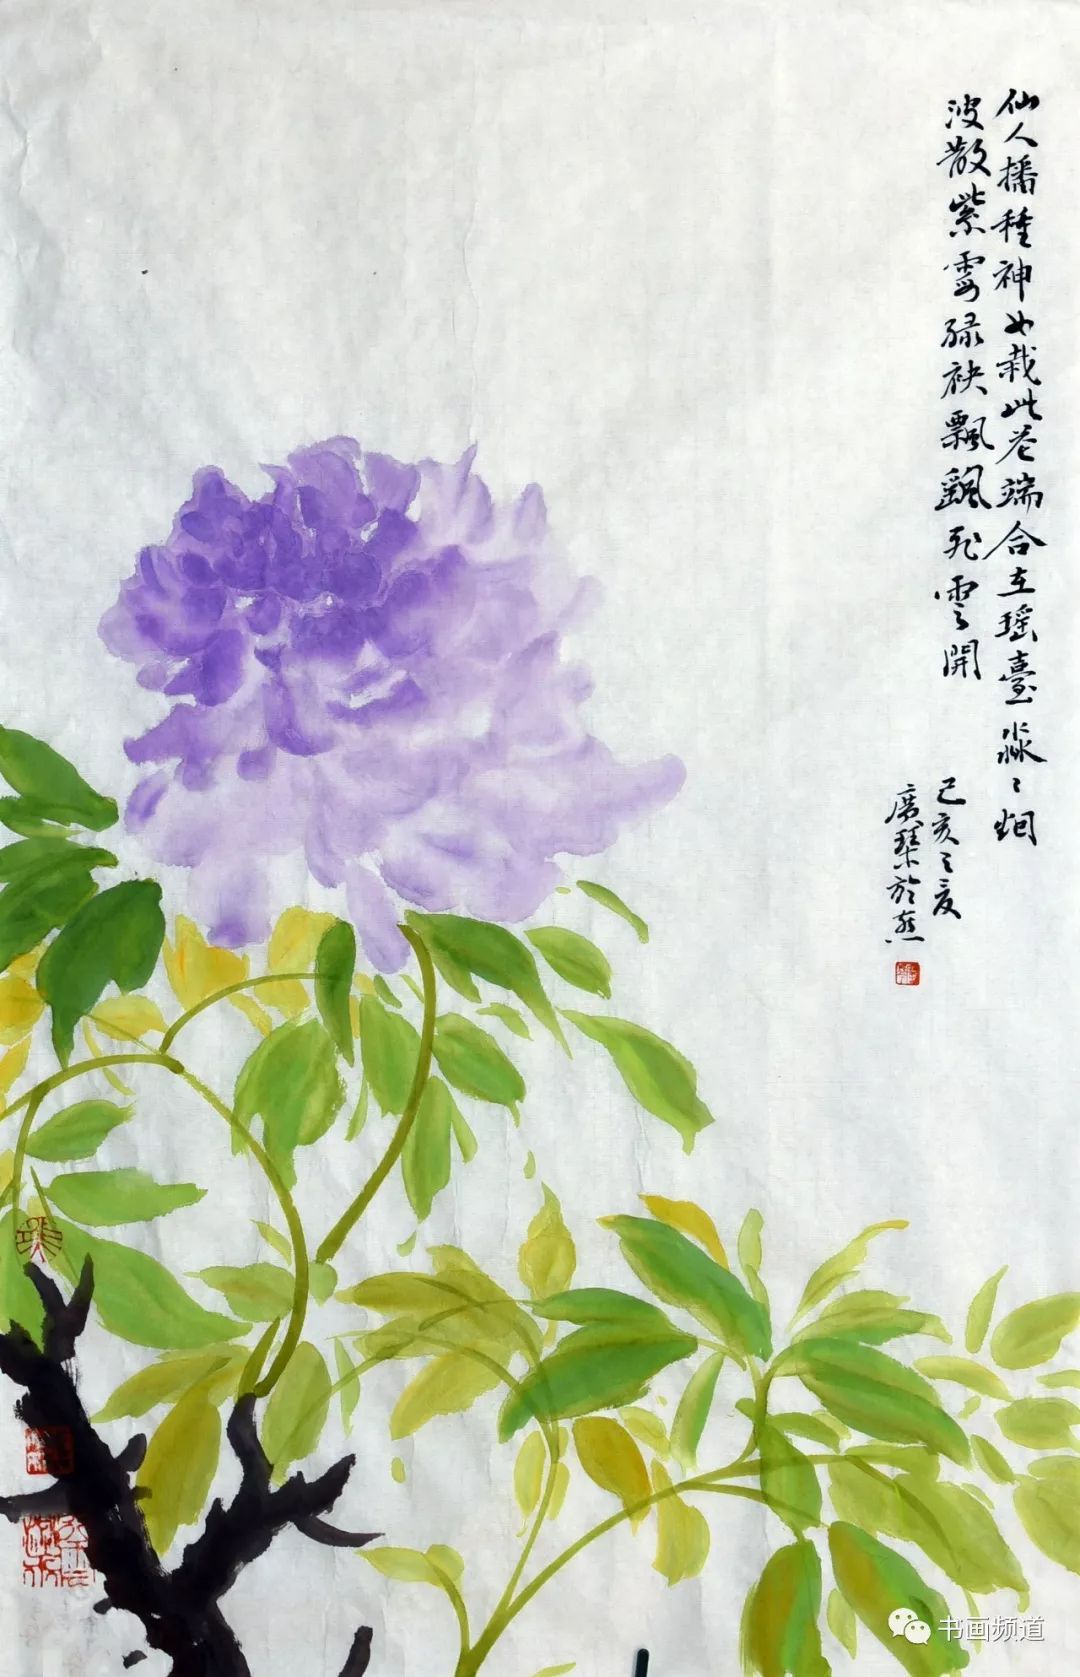 仙人播種神女栽此花端合在瑶臺淼〻烟
波散紫雾绿袂飄飄飛雲開
己亥之夏
廣琹於燕
书画频道